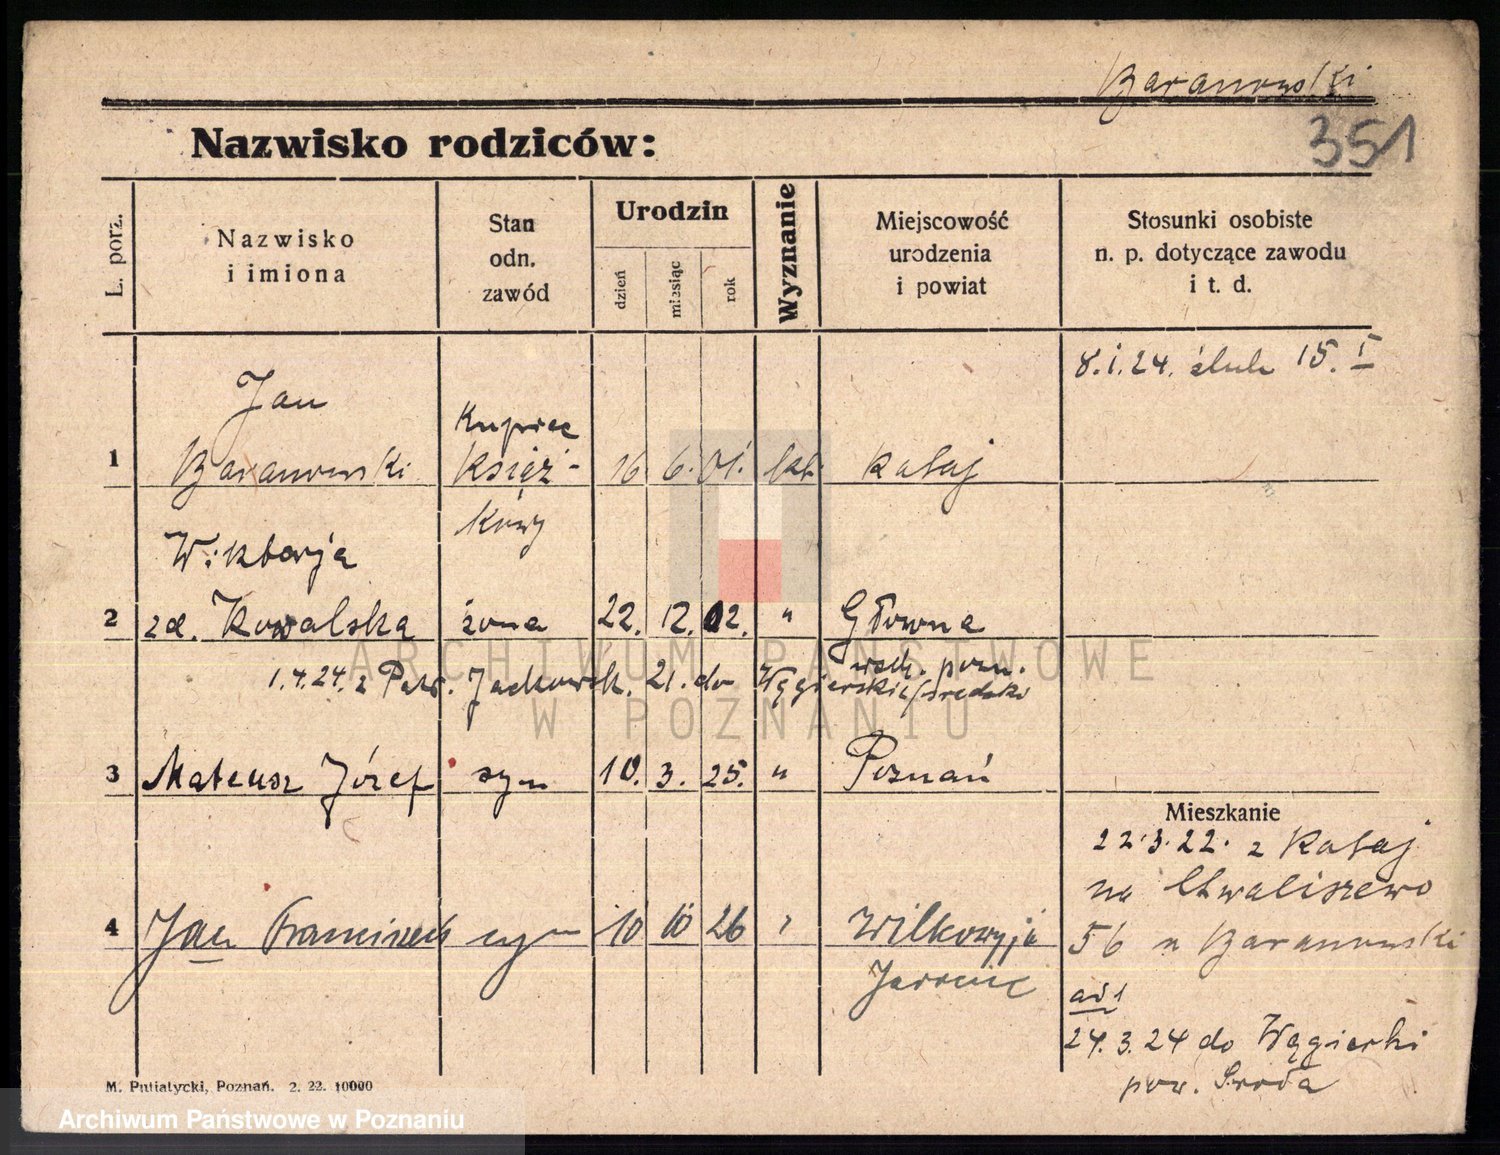 Baranowski
351
Nazwisko rodziców:
L. porz.
Nazwisko
i imiona
Stan
odn.
zawód
Urodzin
dzień
miesiąc
rok
Wyznanie
Miejscowość
urodzenia
i powiat
Stosunki osobiste
n. p. dotyczące zawodu
i t. d.
8.1.24. ślub 15. I
1
Jan
Baranowski
Kupiec
Księż-
kowy
16 6. 01. kat. Rataj
Wiktorja
2
zd. Kowalska żona 22. 12. 02. " Główna
wsch. pozn.
1.4.24. z Jackowsk. 21. do Węgierskie/średzki
3 Mateusz Józef syn 10. 3. 25. " Poznań
Mieszkanie
22.3.22. z Rataj
na Chwaliszewo
56 u Baranowski
4 Jan Franciszek syn 10 10 26 " Wilkowyja
Jarocic
ad 1
24.3.24 do Węgierki
pow. Środa
M. Putiatycki, Poznań. 2. 22. 10000
ARCHIWUM PAŃSTWOWE
W POZNANIU
Archiwum Państwowe w Poznaniu